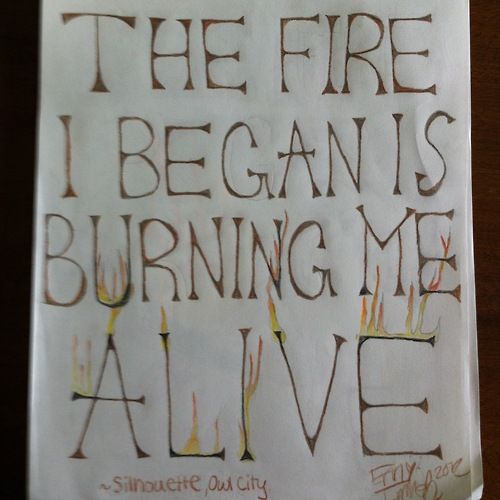 THE FIRE
I BEGAN IS
BURNING ME
ALIVE
~Silhouette, Owl City
2012